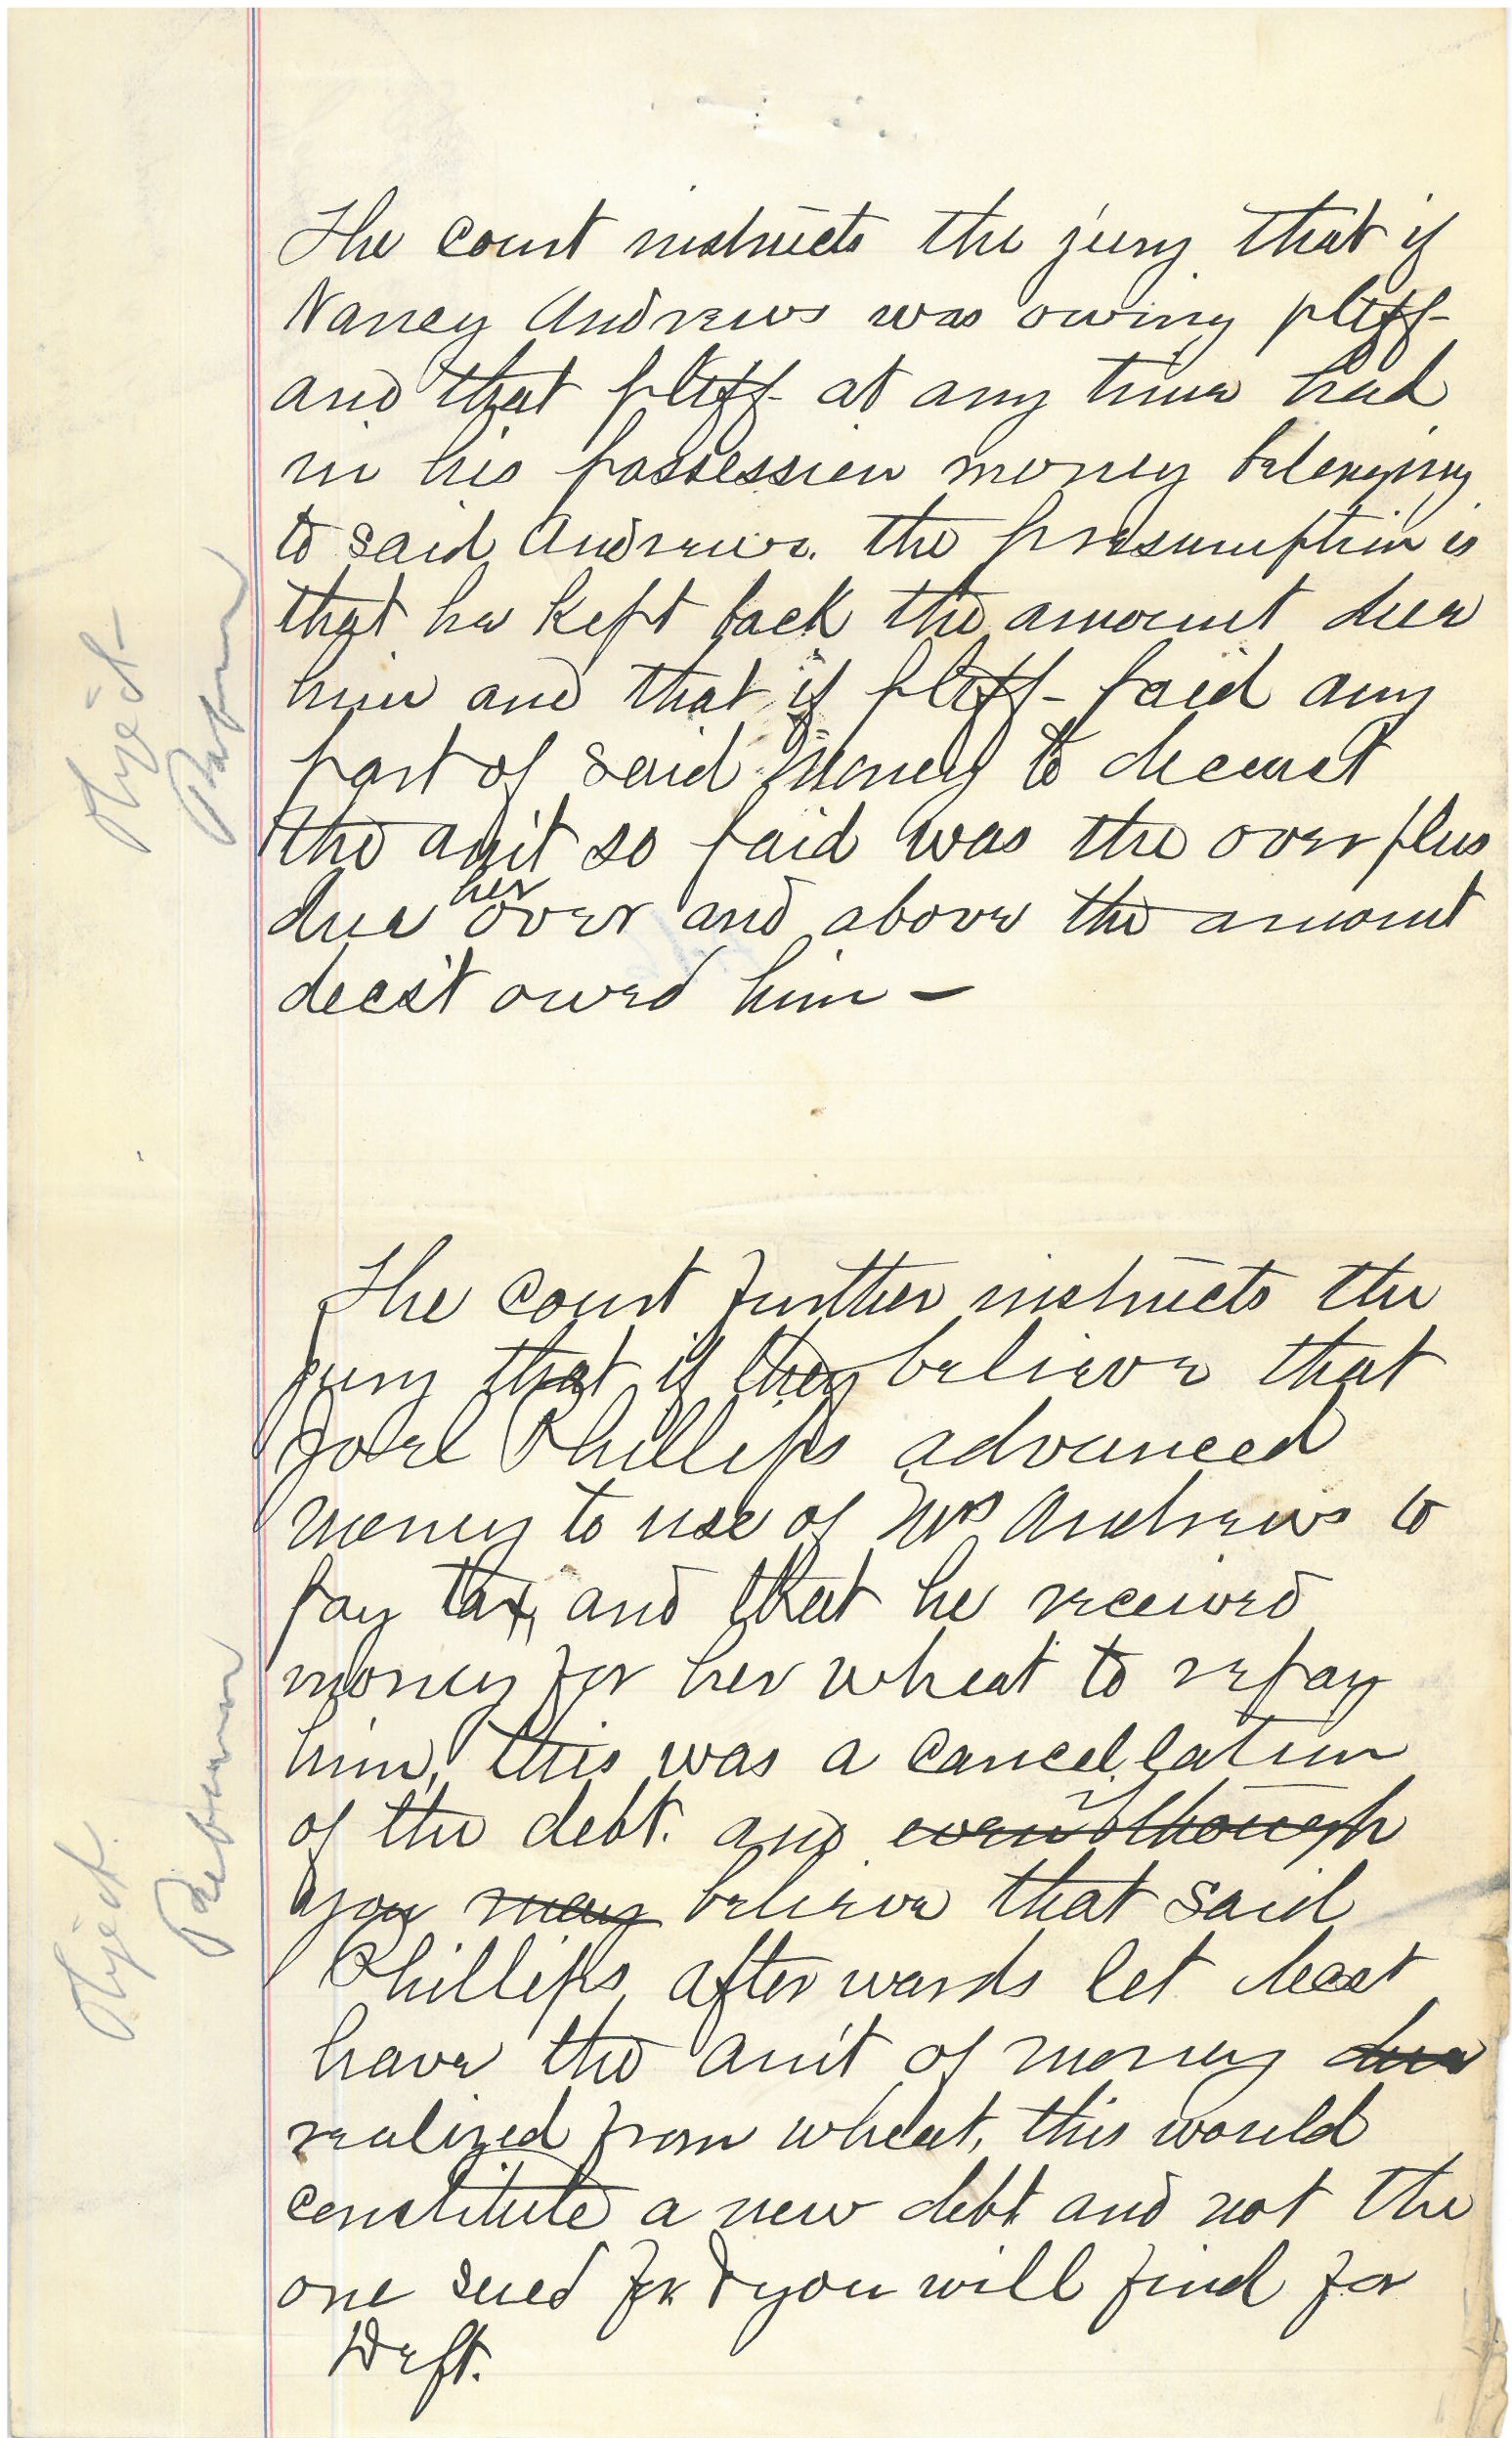 The court instructs the jury that if
Nancy Andrews was owing pltff-
and that pltff- at any time had
in his possession money belonging
to said Andrews. the presumption is
that he kept back the amount due
him and that if pltff- paid any
part of said money to deceast
the am't so paid was the over plus
due her over and above the amount
decst owed him -
Object-
The court further instructs the
jury that if they believe that
Joel Phillips advanced
money to use of Mrs Andrews to
pay tax, and that he received
money for her wheat to repay
him, this was a cancellation
of the debt. and even though if
you may believe that said
Phillips afterwards let decest
have the am't of money due
realized from wheat, this would
constitute a new debt and not the
one sued for & you will find for
Deft.
Object.